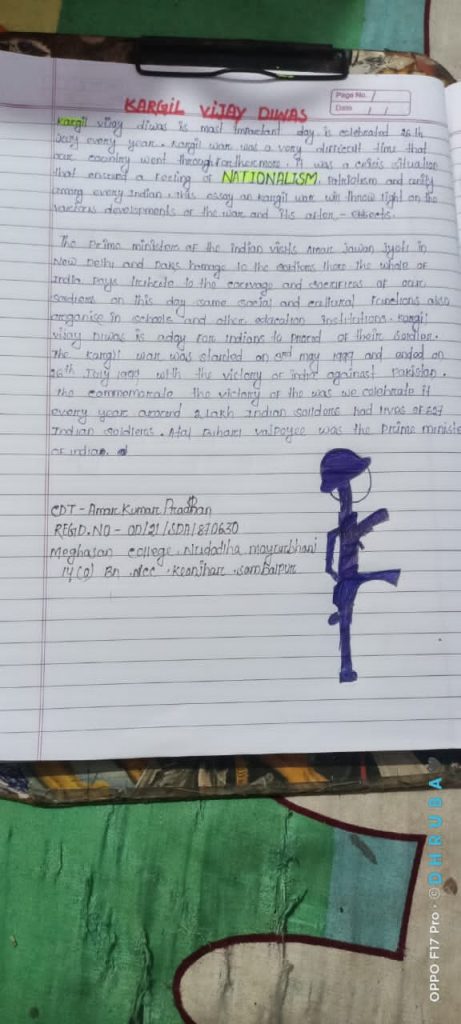 KARGIL VIJAY DIWAS
Page No.
Date
Kargil vijay diwas is most important day is celebrated 26th
July every year. Kargil war was a very difficult time that
our country went through Furthermore. It was a crisis situation
that ensured a feeling of NATIONALISM. Patriotism and unity
among every Indian. This essay on kargil war will throw light on the
various developments of the war and its after - effects.
The Prime ministers of the Indian visits Amar Jawan Jyoti in
New Delhi and pays homage to the soldiers there the whole of
India pays tribute to the courage and sacrifices of our
soldiers on this day some social and cultural functions also
organise in schools and other education institutions. Kargil
vijay Diwas is a day for Indians to proud of their soldier.
The kargil war was started on 3rd may 1999 and ended on
26th July 1999 with the victory of india against pakistan.
the commemorate the victory of the was we celebrate it
every year around 2 lakh Indian soildiers had lives of 527
Indian soldiers. Atal Bihari vajpayee was the prime ministe
of indian.
CDT - Amar Kumar Pradhan
REGD.NO - OD/21/SDA/870630
Meghasan college, Nudadiha mayurbhanj
14(O) Bn .NCC . Keonjhar . sambalpur
OPPO F17 Pro · ©DHRUBA